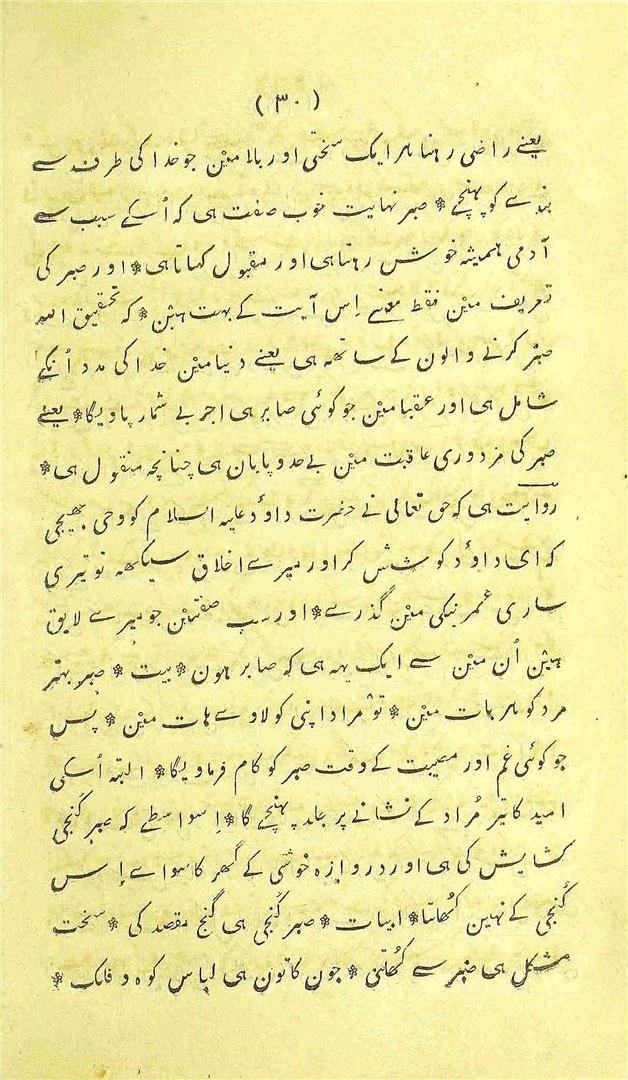 ( ۳۰ )
یعنے راضی رہنا ہر ایک سختی اور بلا میٔن جو خدا کی طرف سے
بندے کو پہنچے * صبر نہایت خوب صفت ہی کہ اُسکے سبب سے
آدمی ہمیشہ خوش رہتا ہی اور مقبول کہاتا ہی * اور صبر کی
تعریف میٔن فقط معنے اِس آیت کے بہت ہیٔن * کہ تحقیق الله
صبر کرنے والون کے ساتھ ہی یعنے دنیا میٔن خدا کی مدد اُنکے
شامل ہی اور عقبا میٔن جو کوئی صابر ہی اجر بے شمار پاویگا * یعنے
صبر کی مزدوری عاقبت میٔن بے حد و پایان ہی چنانچہ منقول ہی *
روایت ہی کہ حق تعالی نے حضرت داوٗد علیہ السلام کو وحی بھیجی
کہ ای داوٗد کوشش کر اور میرے اخلاق سیکھہ تو تیری
ساری عمر نیکی میٔن گذرے * اور سب صفتیٔن جو میرے لایق
ہیٔن اُن میٔن سے ایک یہہ ہی کہ صابر ہون * بیت * صبر بہتر
مرد کو ہر بات میٔن * تو مراد اپنی کو لاوے ہات میٔن * پس
جو کوئی غم اور مصیبت کے وقت صبر کو کام فرماویگا * البتہ اُسکی
امید کا تیر مُراد کے نشانے پر جلد پہنچے گا * اِسواسطے کہ صبر کُنجی
کشایش کی ہی اور دروازہ خوشی کے گھر کا سواے اِس
کُنجی کے نہین کُھلتا * ابیات * صبر کُنجی ہی گنج مقصد کی * سخت
مشکل ہی صبر سے کُھلتی * جون کا تون ہی لباس کوہ و فلک *